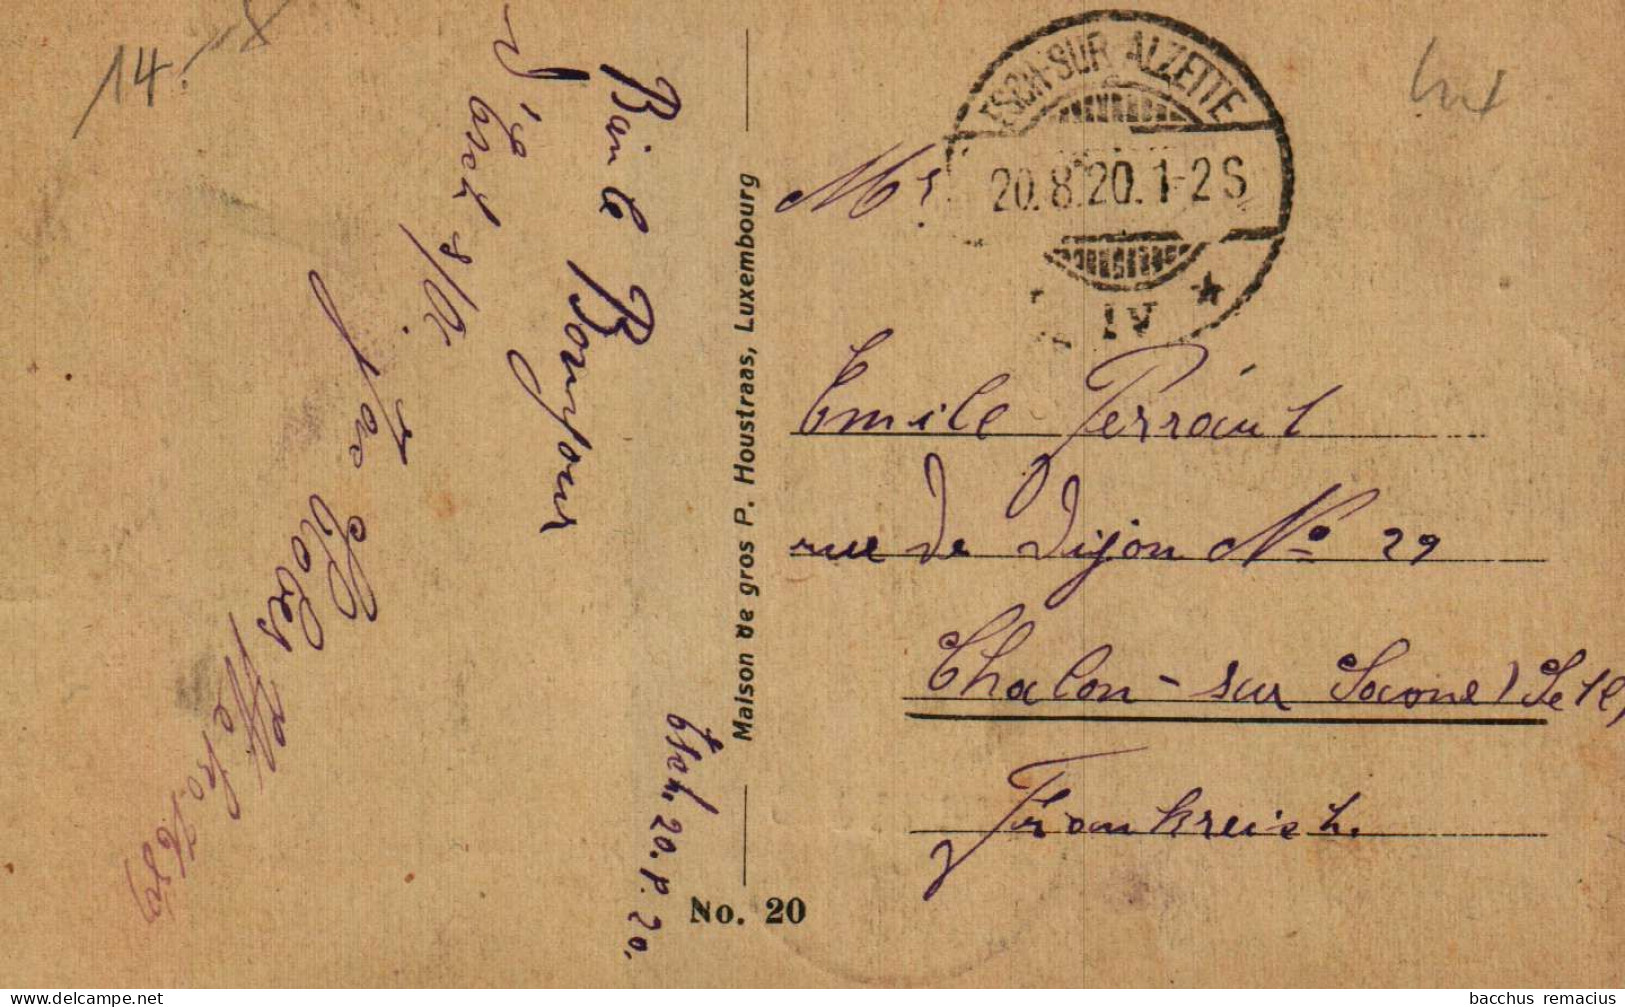 14.
ESCH-SUR ALZETTE
20.8.20.1-2S
IV
Lux
Esch. 20.8.20.
Bain le Bonjour
d'Esch s/Al.
Maison de gros P. Houstraas, Luxembourg
No. 20
Mr
Emile Perraut
rue de Dijon No 29
Chalon-sur Saone (S et L)
Frankreich.
www.delcampe.net
bacchus remacius